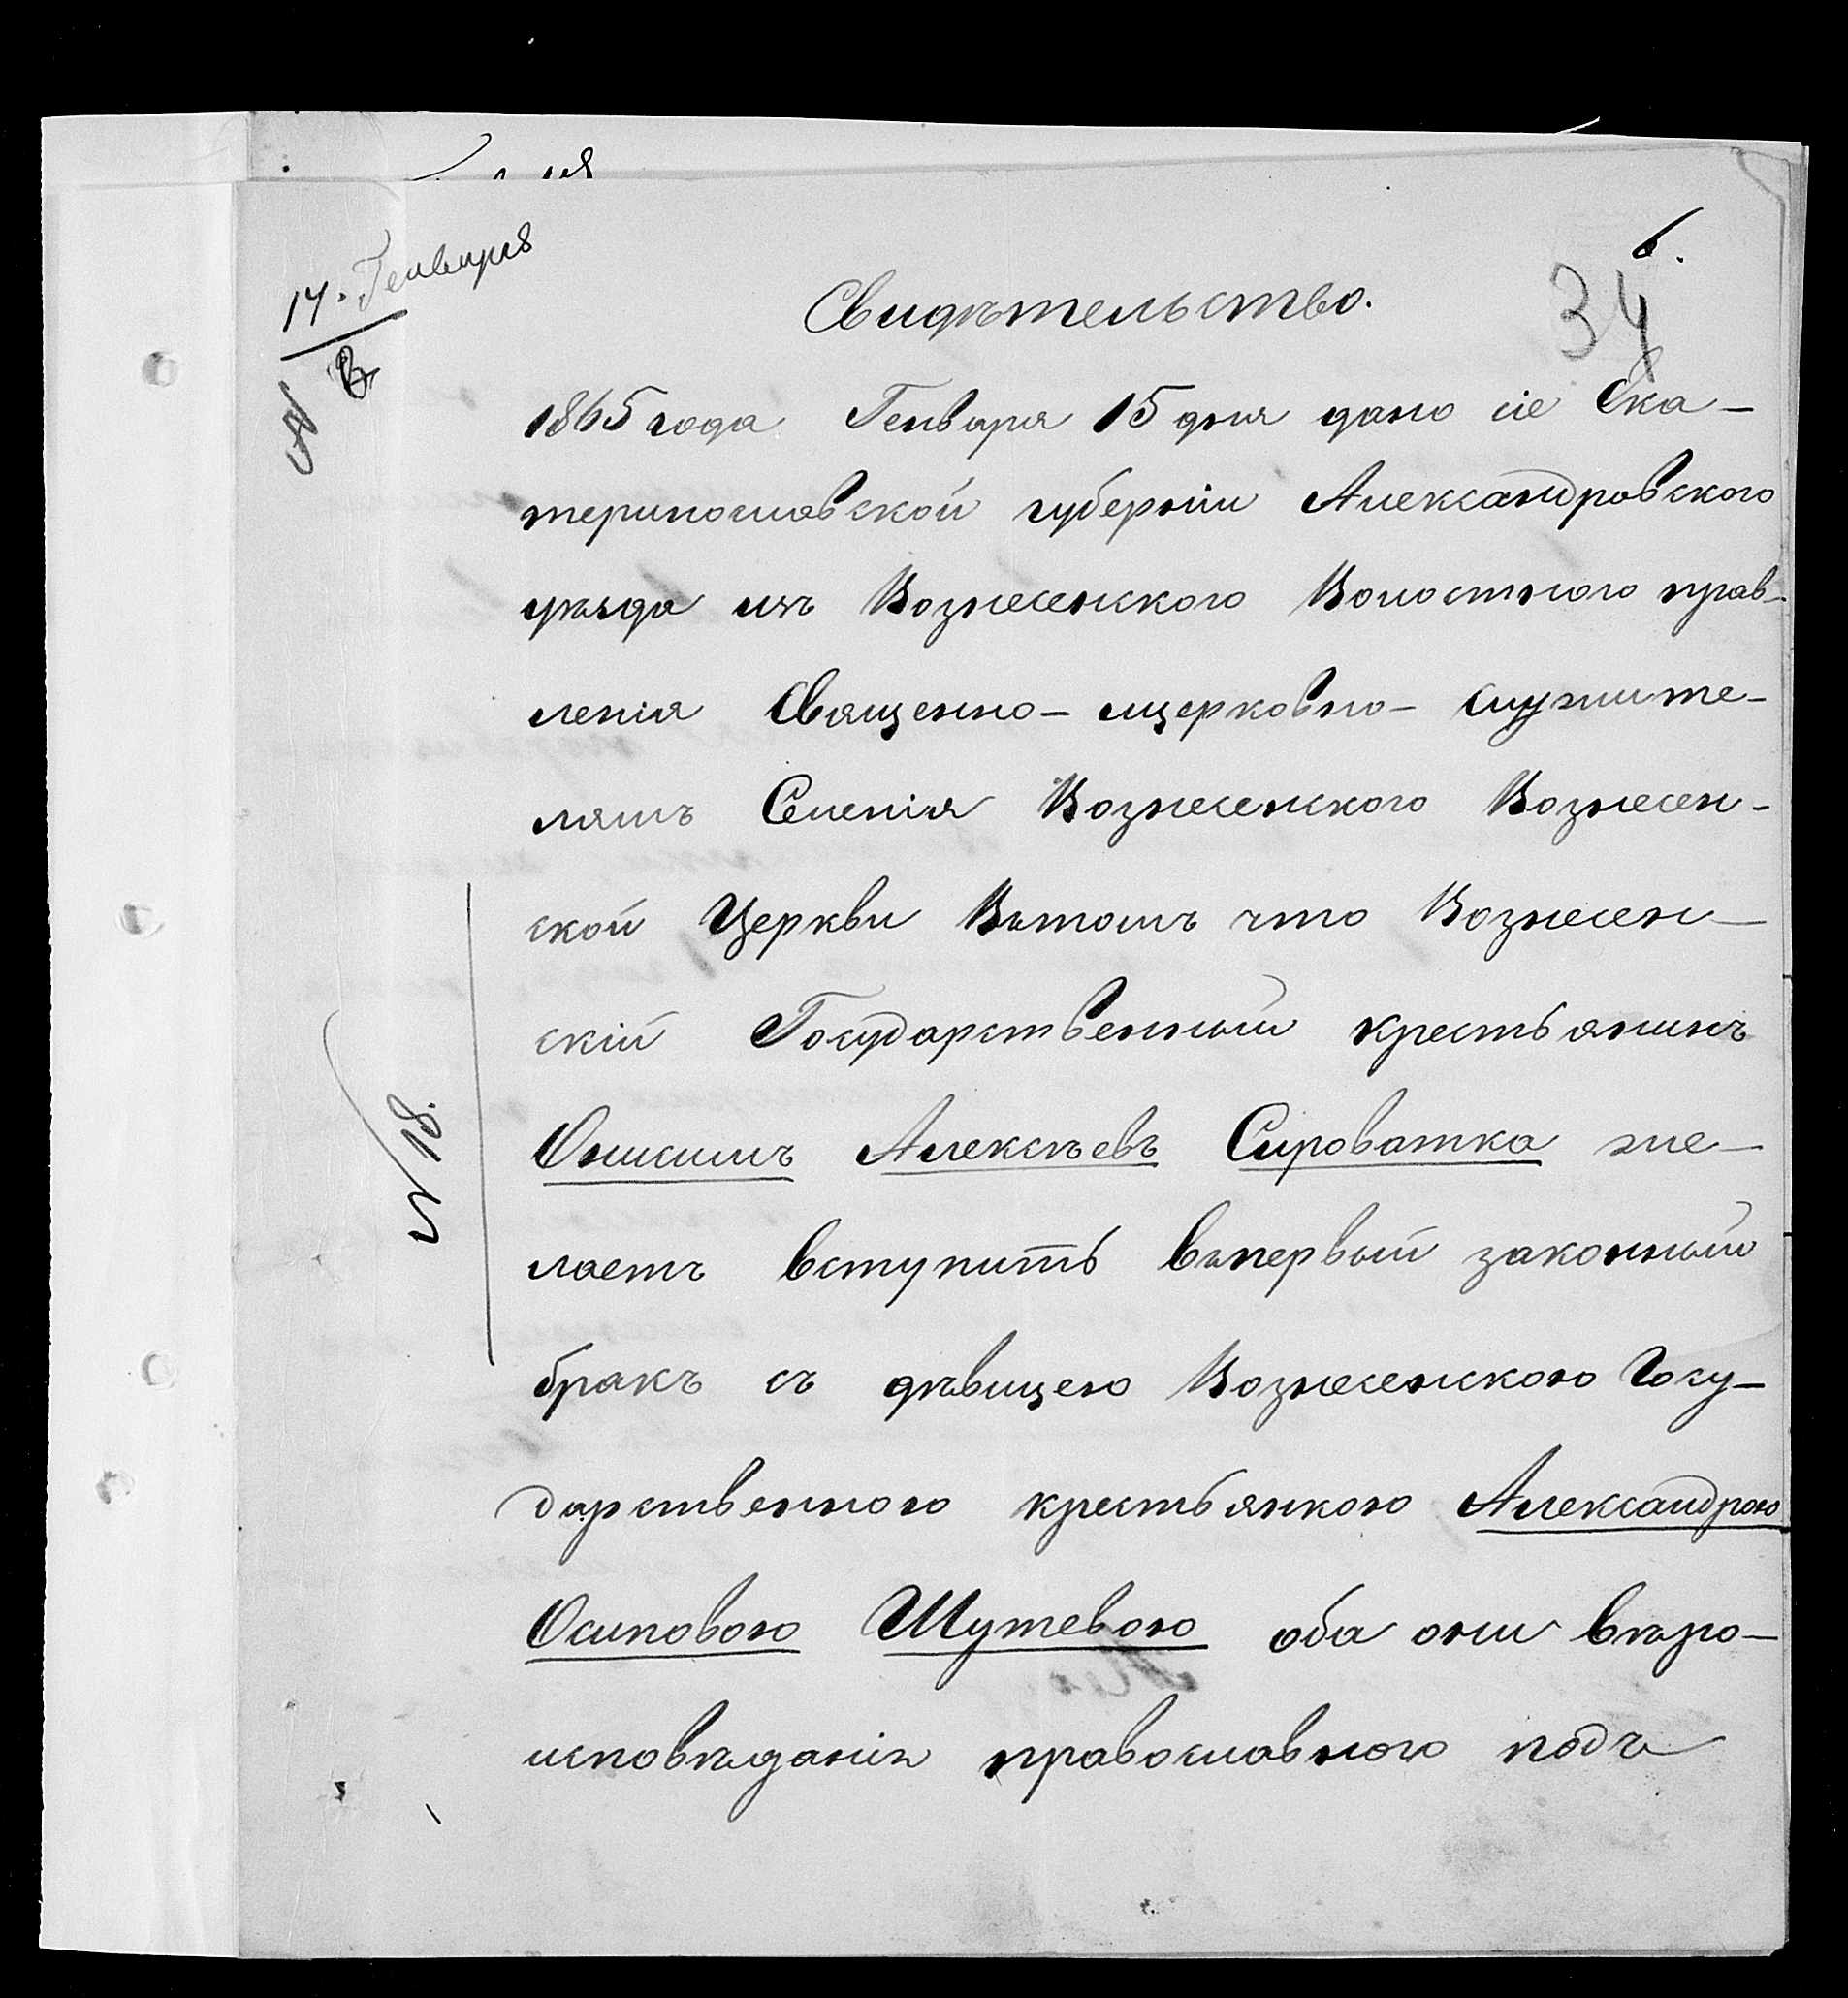 17. Генваря
6.
34
Свидѣтельство.
1865 года Генваря 15 дня дано сіе Ека-
теринославской губерніи Александровского
уѣзда изъ Вознесенского Волостного прав-
ленія Священно-церковно-служите-
лямъ Селенія Вознесенского Вознесен-
ской Церкви Вътомъ что Вознесен-
скій Государственный крестьянинъ
Онисимъ Алексѣевъ Сироватка же-
лаетъ вступить въпервый законный
бракъ съ дѣвицею Вознесенскою Госу-
дарственною крестьянкою Александрою
Осиповою Шутевою оба они вѣро-
исповѣданія православного подъ
№ 18.